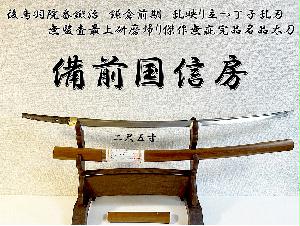 後鳥羽院番鍛冶 鎌倉前期 乱映り立つ丁子乱刃
無監査最上研磨帰り傑作無疵完品名品太刀
備前国信房
二尺五寸